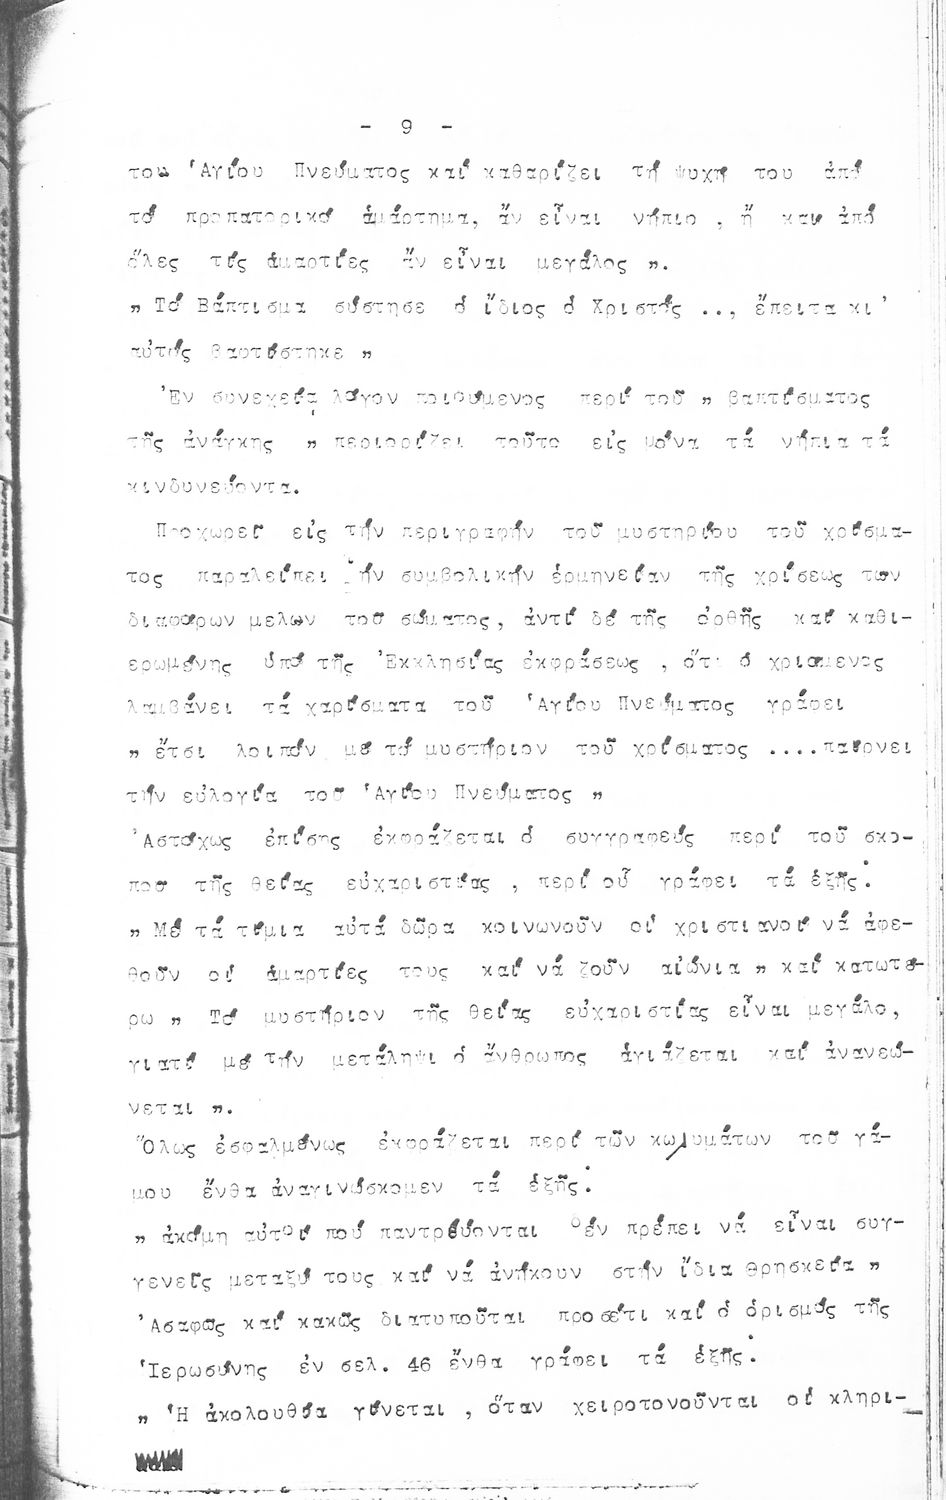 - 9 -
του Ἁγίου Πνεύματος καί καθαρίζει τή ψυχή του ἀπό
τό προπατορικό ἁμάρτημα, ἄν εἶναι νήπιο , ἤ και ἀπό
ὅλες τίς ἁμαρτίες ἄν εἶναι μεγάλος ".
" Τό Βάπτισμα σύστησε ὁ ἴδιος ὁ Χριστός .., ἔπειτα κι'
αὐτός βαφτίστηκε "
Ἐν συνεχείᾳ λόγον ποιούμενος περί τοῦ " βαπτίσματος
τῆς ἀνάγκης " περιορίζει τοῦτο εἰς μόνα τά νήπια τά
κινδυνεύοντα.
Προχωρεῖ εἰς τήν περιγραφήν τοῦ μυστηρίου τοῦ χρίσμα-
τος παραλείπει τήν συμβολικήν ἑρμηνείαν τῆς χρίσεως των
διαφόρων μελων τοῦ σώματος, ἀντί δέ τῆς ὀρθῆς καί καθι-
ερωμένης ὑπό τῆς Ἐκκλησίας ἐκφράσεως , ὅτι ὁ χριομενος
λαμβάνει τά χαρίσματα τοῦ Ἁγίου Πνεύματος γράφει
" ἔτσι λοιπόν με τό μυστήριον τοῦ χρίσματος ....παίρνει
τήν εὐλογία τοῦ Ἁγίου Πνεύματος "
Ἀστόχως ἐπίσης ἐκφράζεται ὁ συγγραφεύς περί τοῦ σκο-
ποῦ τῆς θείας εὐχαριστίας , περί οὗ γράφει τά ἑξῆς:
" Μέ τά τίμια αὐτά δῶρα κοινωνοῦν οἱ χριστιανοί νά ἀφε-
θοῦν οἱ ἁμαρτίες τους καί νά ζοῦν αἰώνια " καί κατωτέ-
ρω " Τό μυστήριον τῆς θείας εὐχαριστίας εἶναι μεγάλο,
γιατί με τήν μετάληψι ὁ ἄνθρωπος ἁγιάζεται καί ἀνανεώ-
νεται ".
Ὅλως ἐσφαλμένως ἐκφράζεται περί τῶν κωλυμάτων τοῦ γά-
μου ἔνθα ἀναγινώσκομεν τά ἑξῆς:
" ἀκόμη αὐτοί πού παντρεύονται δέν πρέπει νά εἶναι συγ-
γενεῖς μεταξύ τους καί νά ἀνήκουν στήν ἴδια θρησκεία "
Ἀσαφῶς καί κακῶς διατυποῦται προσέτι καί ὁ ὁρισμός τῆς
Ἱερωσύνης ἐν σελ. 46 ἔνθα γράφει τά ἑξῆς:
" Ἡ ἀκολουθία γίνεται , ὅταν χειροτονοῦνται οἱ κληρι-